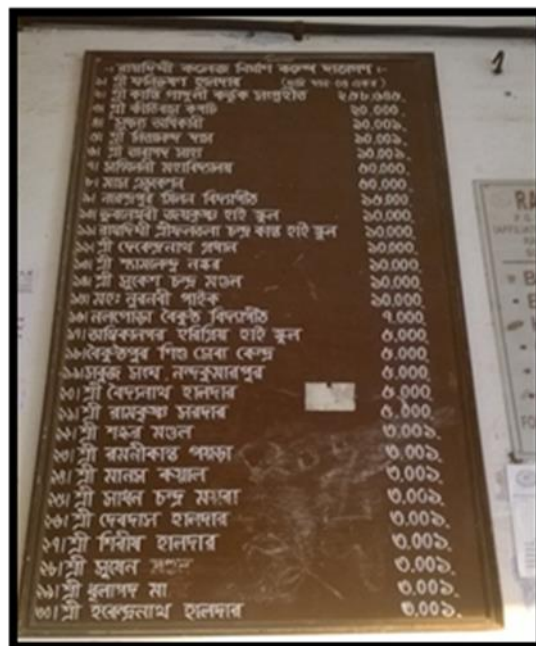 রায়দিঘী কলেজ নির্মাণ কল্পে দাতাগণ :-
১। শ্রী ফনিভূষণ হালদার
২। শ্রী কান্তি গাঙ্গুলী কর্তৃক সংগৃহীত
৩। শ্রী ২০,০০০
৪। অধিকারী ১০,০০১
৫। শ্রী ১০,০০১
৬। শ্রী তারাপদ সাহা ১০,০০১
৭। সম্মিলনী মহাবিদ্যালয় ৫০,০০০
৮। ৫০,০০০
৯। নরেন্দ্রপুর মিলন বিদ্যাপীঠ ১৫,০০০
১০। ভুবনেশ্বরী জয়কৃষ্ণ হাই স্কুল ১০,০০০
১১। রায়দিঘী শ্রীফলতলা চন্দ্র কান্ত হাই স্কুল ১০,০০০
১২। শ্রী দেবেন্দ্রনাথ প্রধান ১০,০০০
১৩। শ্রী শ্যামলেন্দু নস্কর ১০,০০০
১৪। শ্রী সুকেশ চন্দ্র মণ্ডল ১০,০০০
১৫। মহঃ নুরনবী পাইক ১০,০০০
১৬। নলগোড়া বৈকুন্ঠ বিদ্যাপীঠ ৭,০০০
১৭। অম্বিকানগর হরিপ্রিয়া হাই স্কুল ৫,০০০
১৮। বৈকুন্ঠপুর শিশু সেবা কেন্দ্র ৫,০০০
১৯। সবুজ সংঘ, নন্দকুমারপুর ৫,০০০
২০। শ্রী বৈদ্যনাথ হালদার ৫,০০০
২১। শ্রী রামকৃষ্ণ সরদার ৫,০০০
২২। শ্রী শঙ্কর মণ্ডল ৩,০০১
২৩। শ্রী রমনীকান্ত ৩,০০১
২৪। শ্রী মানস কয়াল ৩,০০১
২৫। শ্রী সাধন চন্দ্র ৩,০০১
২৬। শ্রী দেবদাস হালদার ৩,০০১
২৭। শ্রী গিরীষ হালদার ৩,০০১
২৮। শ্রী সুষেন মণ্ডল ৩,০০১
২৯। শ্রী ধুলাপদ মা ৩,০০১
৩০। শ্রী হরেন্দ্রনাথ হালদার ৩,০০১
1
RA